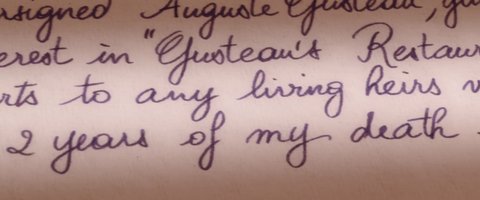 rsigned Auguste Gusteau, giv
erest in "Gusteau's Restaur
rts to any living heirs
2 years of my death